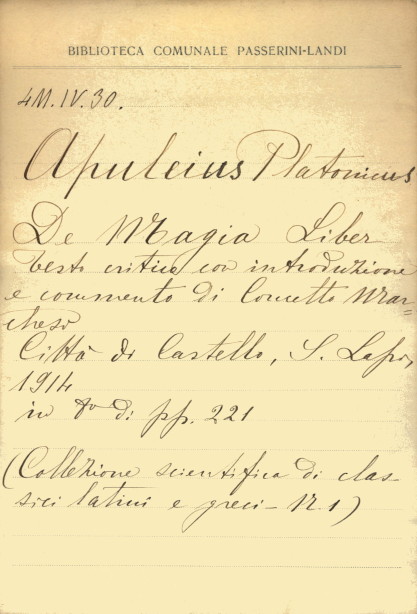 BIBLIOTECA COMUNALE PASSERINI-LANDI
4M.IV.30.
Apuleius Platonicus
De Magia Liber
testo critico con introduzione
e commento di Concetto Mar=
chesi
Città di Castello, S. Lapi,
1914
in 8º di pp. 221
(Collezione scientifica di clas-
sici latini e greci - N. 1)